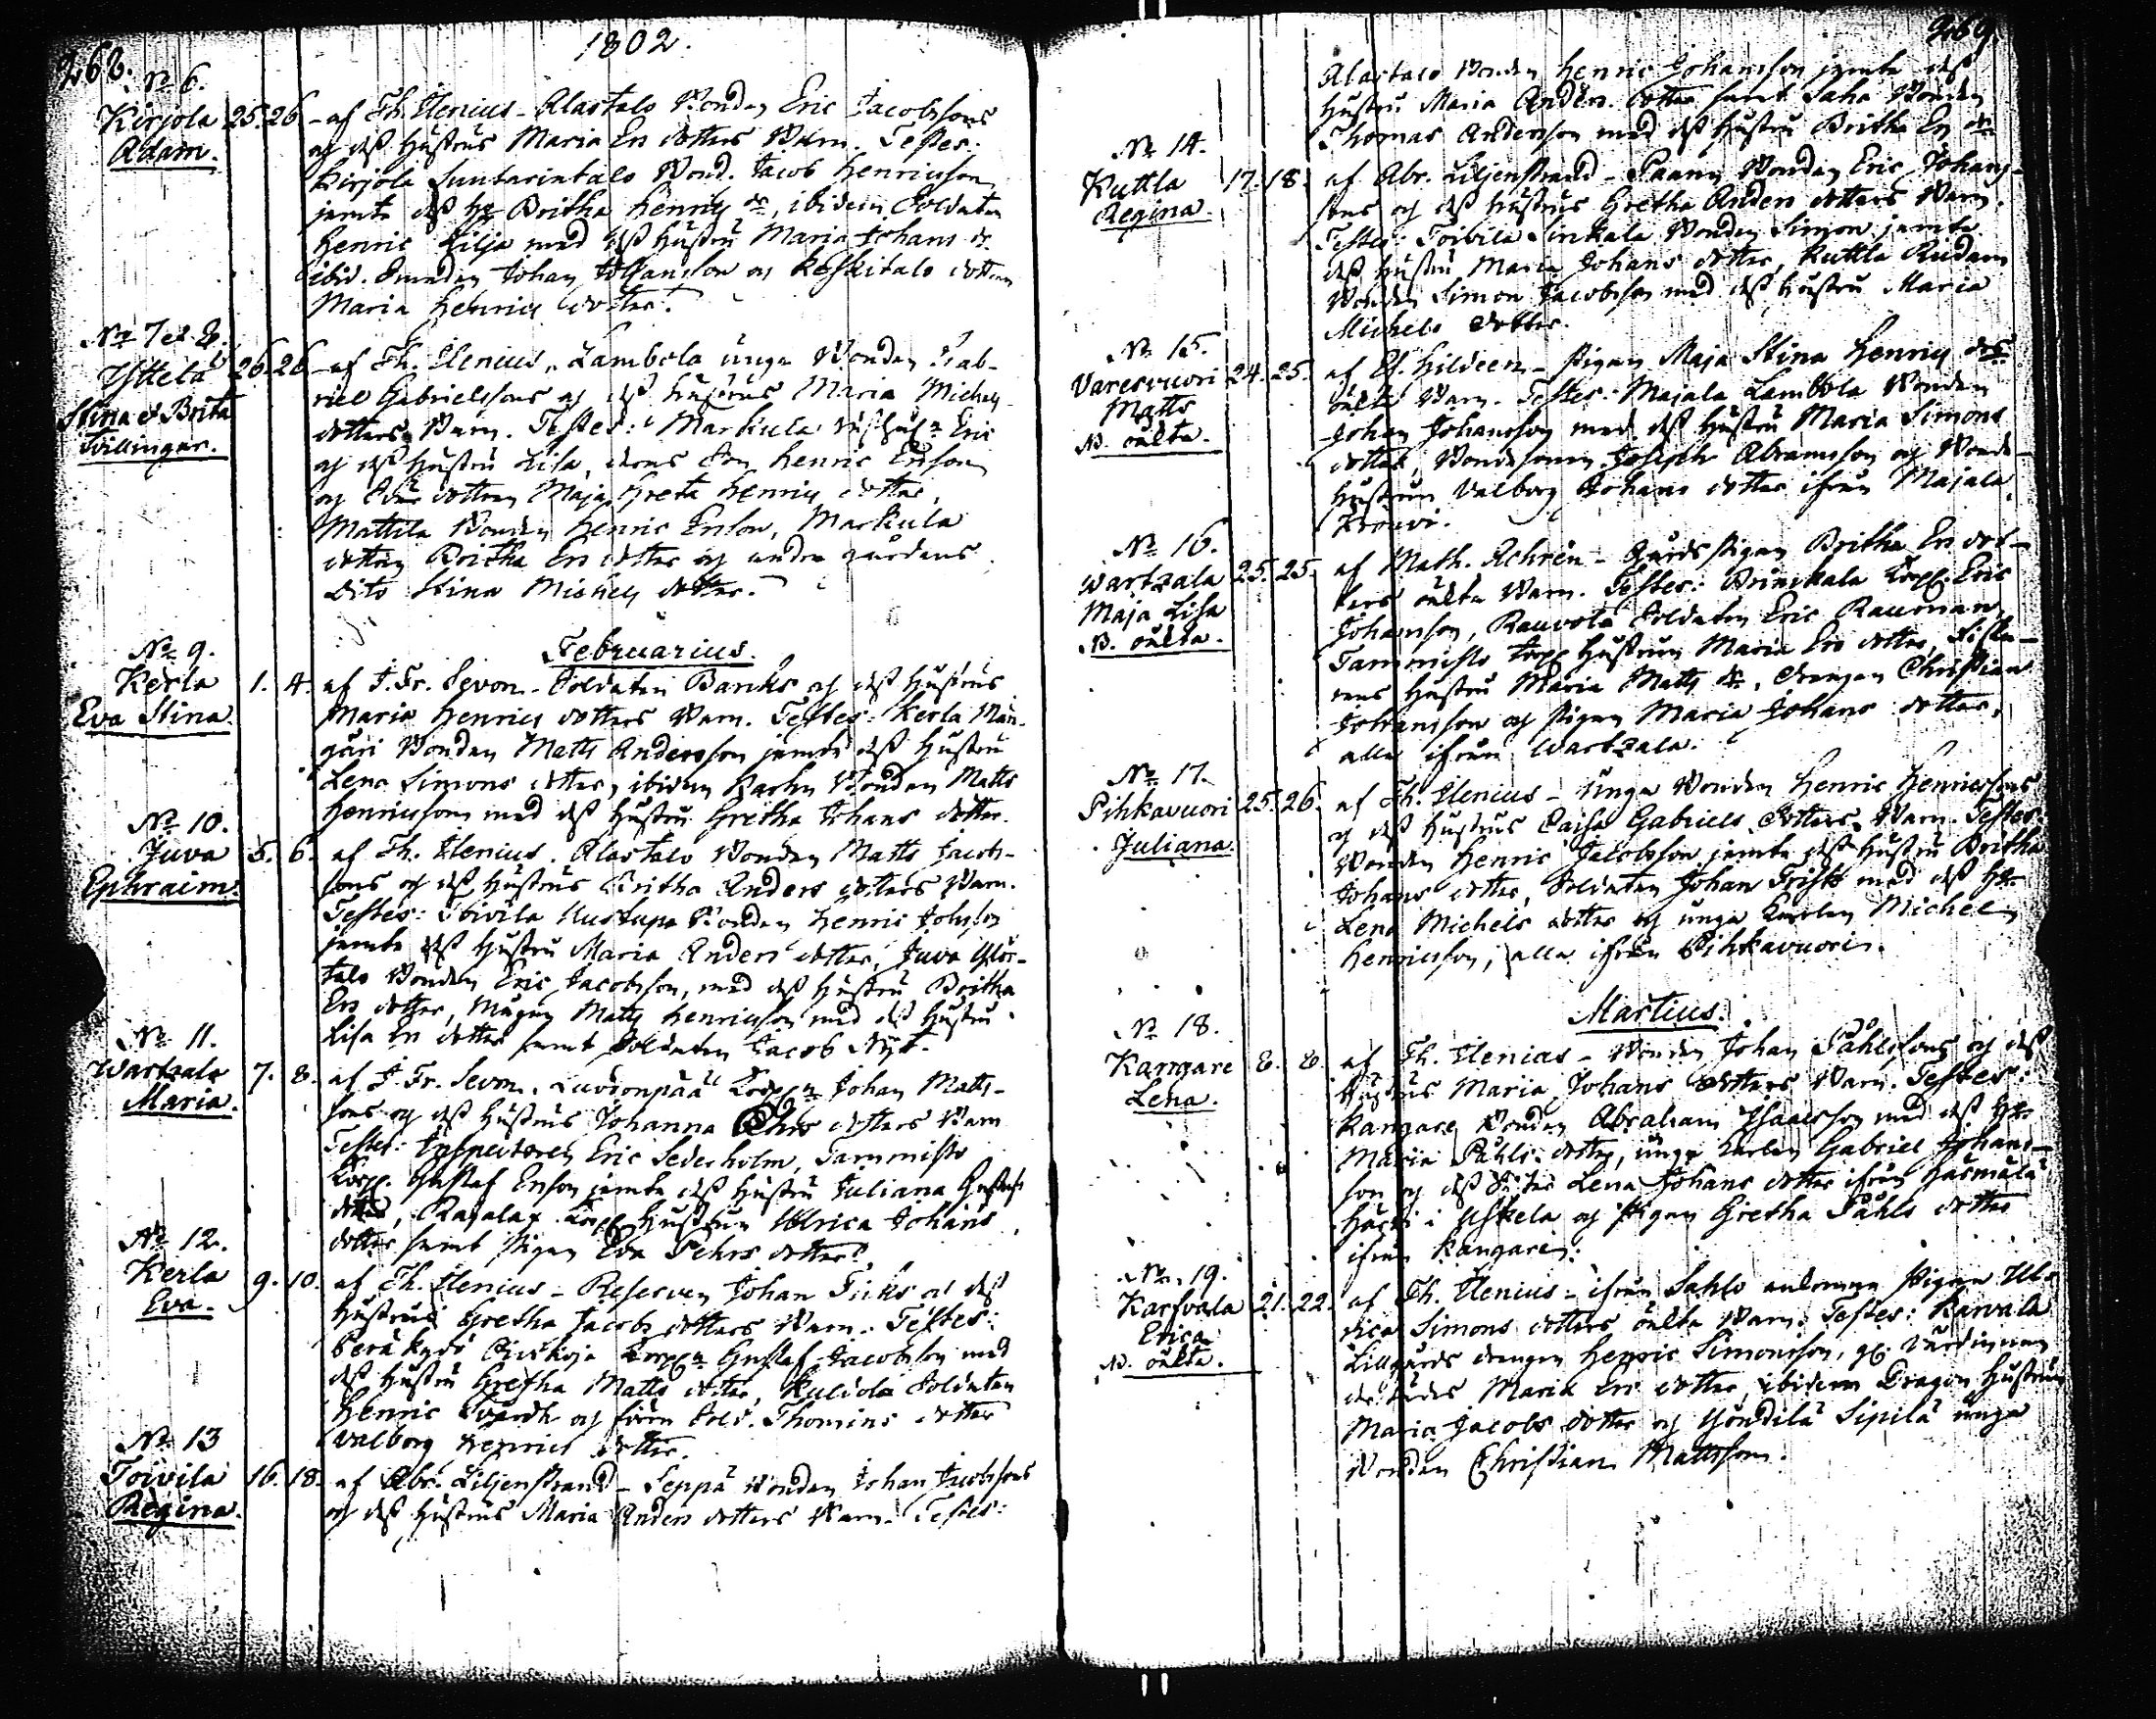 268.
1802.
No 6.
Kirjola 25. 26.
Adam.
af Th. Elenius - Alastalo Bonden Eric Jacobssons
og dess Hustrus Maria Ers dotters Barn. Testes:
Kirjola Suntarintalo Bond. Jacob Henricsson
jemte dess H. Britha Henrics dr, ibidem Soldaten
Henric Lilja med dess Hustru Maria Johans dr
ibid. Johan Johansson og Koskitalo dottren
Maria Henrics dotter.
No 7 et 8.
Yttelä 26. 26
Stina & Brita
Tvillingar.
af Th. Elenius, Lambola unga Bonden Gab-
riel Gabrielssons og dess hustrus Maria Michels
dotters Barn. Testes: Markula Eric
og dess Hustru Lisa, Son Henric Ersson
og dottren Maja Greta Henrics dotter,
Mattila Bonden Henric Ersson, Markula
dottren Britha Ers dotter og andra gårdens
dito Stina Michels dotter.
Februarius.
No 9.
Kerla 1. 4.
Eva Stina.
af J. Fr. Sevon - Soldaten Banks og dess Hustrus
Maria Henrics dotters Barn. Testes: Kerla Män-
gäri Bonden Matts Andersson jemte dess Hustru
Lena Simons dotter, ibidem Bonden Matts
Henricsson med dess Hustru Gretha Johans dotter.
No 10.
Juva 5. 6.
Ephraim.
af Th. Elenius. Alastalo Bonden Matts Jacobs-
sons og dess Hustrus Britha Anders dotters Barn.
Testes: Toivila Uustupa Bonden Henric
jemte dess Hustru Maria Anders dotter, Juva Ylös-
talo Bonden Eric Jacobsson, med dess Hustru Britha
Ers dotter, Mågen Matts Henricsson med dess Hustru
Lisa Ers dotter samt Soldaten Jacob Nyt.
No 11.
Wartsala 7. 8.
Maria.
af J. Fr. Sevon. Luvionpää Torp. Johan Matts-
sons og dess Hustrus Johanna dotters Barn
Testes: Inspectoren Eric Sederholm, Tammisto
Torp. Gustaf Ersson jemte dess Hustru Juliana Gustafs
dotter, Torp. Hustrun Ulrica Johans
dotter samt Pigan Eva Pehrs dotter.
No 12.
Kerla 9. 10.
Eva.
af Th. Elenius - Reserven Johan og dess
Hustrus Gretha Jacobs dotters Barn. Testes:
Torp. Gustaf Jacobsson med
dess Hustru Gretha Matts dotter, Kuldola Soldaten
Henric Svärdh og Sold. Thomins dotter
Valborg Henrics dotter.
No 13
Toivila 16. 18.
Regina.
af Abr. Liljenstrand - Seppä Bonden Johan Jacobssons
og dess Hustrus Maria Anders dotters Barn. Testes:
269.
Alastalo Bonden Henric Johansson jemte dess
Hustru Maria Anders dotter samt Saha Bonden
Thomas Andersson med dess Hustru Britha Ers dr.
No 14.
Kuttla 17. 18.
Regina.
af Abr. Liljenstrand - Paanu Bonden Eric Johans-
sons og dess Hustrus Gretha Anders dotters Barn.
Testes: Toivila Sinkala Bonden Simon jemte
dess Hustru Maria Johans dotter, Kuttla
Bonden Simon Jacobsson med dess Hustru Maria
Michels dotter.
No 15.
Varesvuori 24. 25.
Matts
N. oäkta.
af Hildeen - Pigan Maja Stina Henrics drs
oäkta Barn. Testes: Majala Lambola Bonden
Johan Johansson med dess Hustru Maria Simons
dotter, Bondesonen Joseph Abramsson og Bonde-
Hustrun Valborg Johans dotter ifrån Majala
Krouvi.
No 16.
Wartzala 25. 25.
Maja Lisa
N. oäkta.
af Math. Achrén - Gårds Pigan Britha Ers dot-
ters oäkta Barn. Testes: Torp. Eric
Johansson, Rauvola Soldaten Eric
Tammisto Torp. Hustrun Maria Ers dotter,
Hustru Maria Matts dr, drengen Christian
Johansson og Pigan Maria Johans dotter,
alla ifrån Wartzala.
No 17.
Pihkavuori 25. 26.
Juliana.
af Th. Elenius - Unga Bonden Henric Henricssons
og dess Hustrus Caisa Gabriels dotters Barn. Testes:
Bonden Henric Jacobsson jemte dess Hustru Britha
Johans dotter, Soldaten Johan Frisk med dess H.
Lena Michels dotter og unga Karlen Michel
Henricsson, alla ifrån Pihkavuori.
Martius.
No 18.
Kangare 8. 8.
Lena.
af Th. Elenius - Bonden Johan Påhlssons og dess
Hustrus Maria Johans dotters Barn. Testes:
Kangare Bonden Abraham Isaacsson med dess H.
Maria Påhls dotter, unga Karlen Gabriel Johans-
son og dess Syster Lena Johans dotter ifrån
i Yskela og Pigan Gretha Påhls dotter
ifrån Kangare.
No 19.
Karvala 21. 22.
Erica
N. oäkta.
af Th. Elenius - ifrån Sahlo ankomna Pigan Ul-
rica Simons dotters oäkta Barn. Testes: Karvala
Lillgårds drengen Henric Simonsson, Värdinnan
Maria Ers dotter, ibidem Dragon Hustrun
Maria Jacobs dotter og Sipilä unga
Bonden Christian Mattsson.